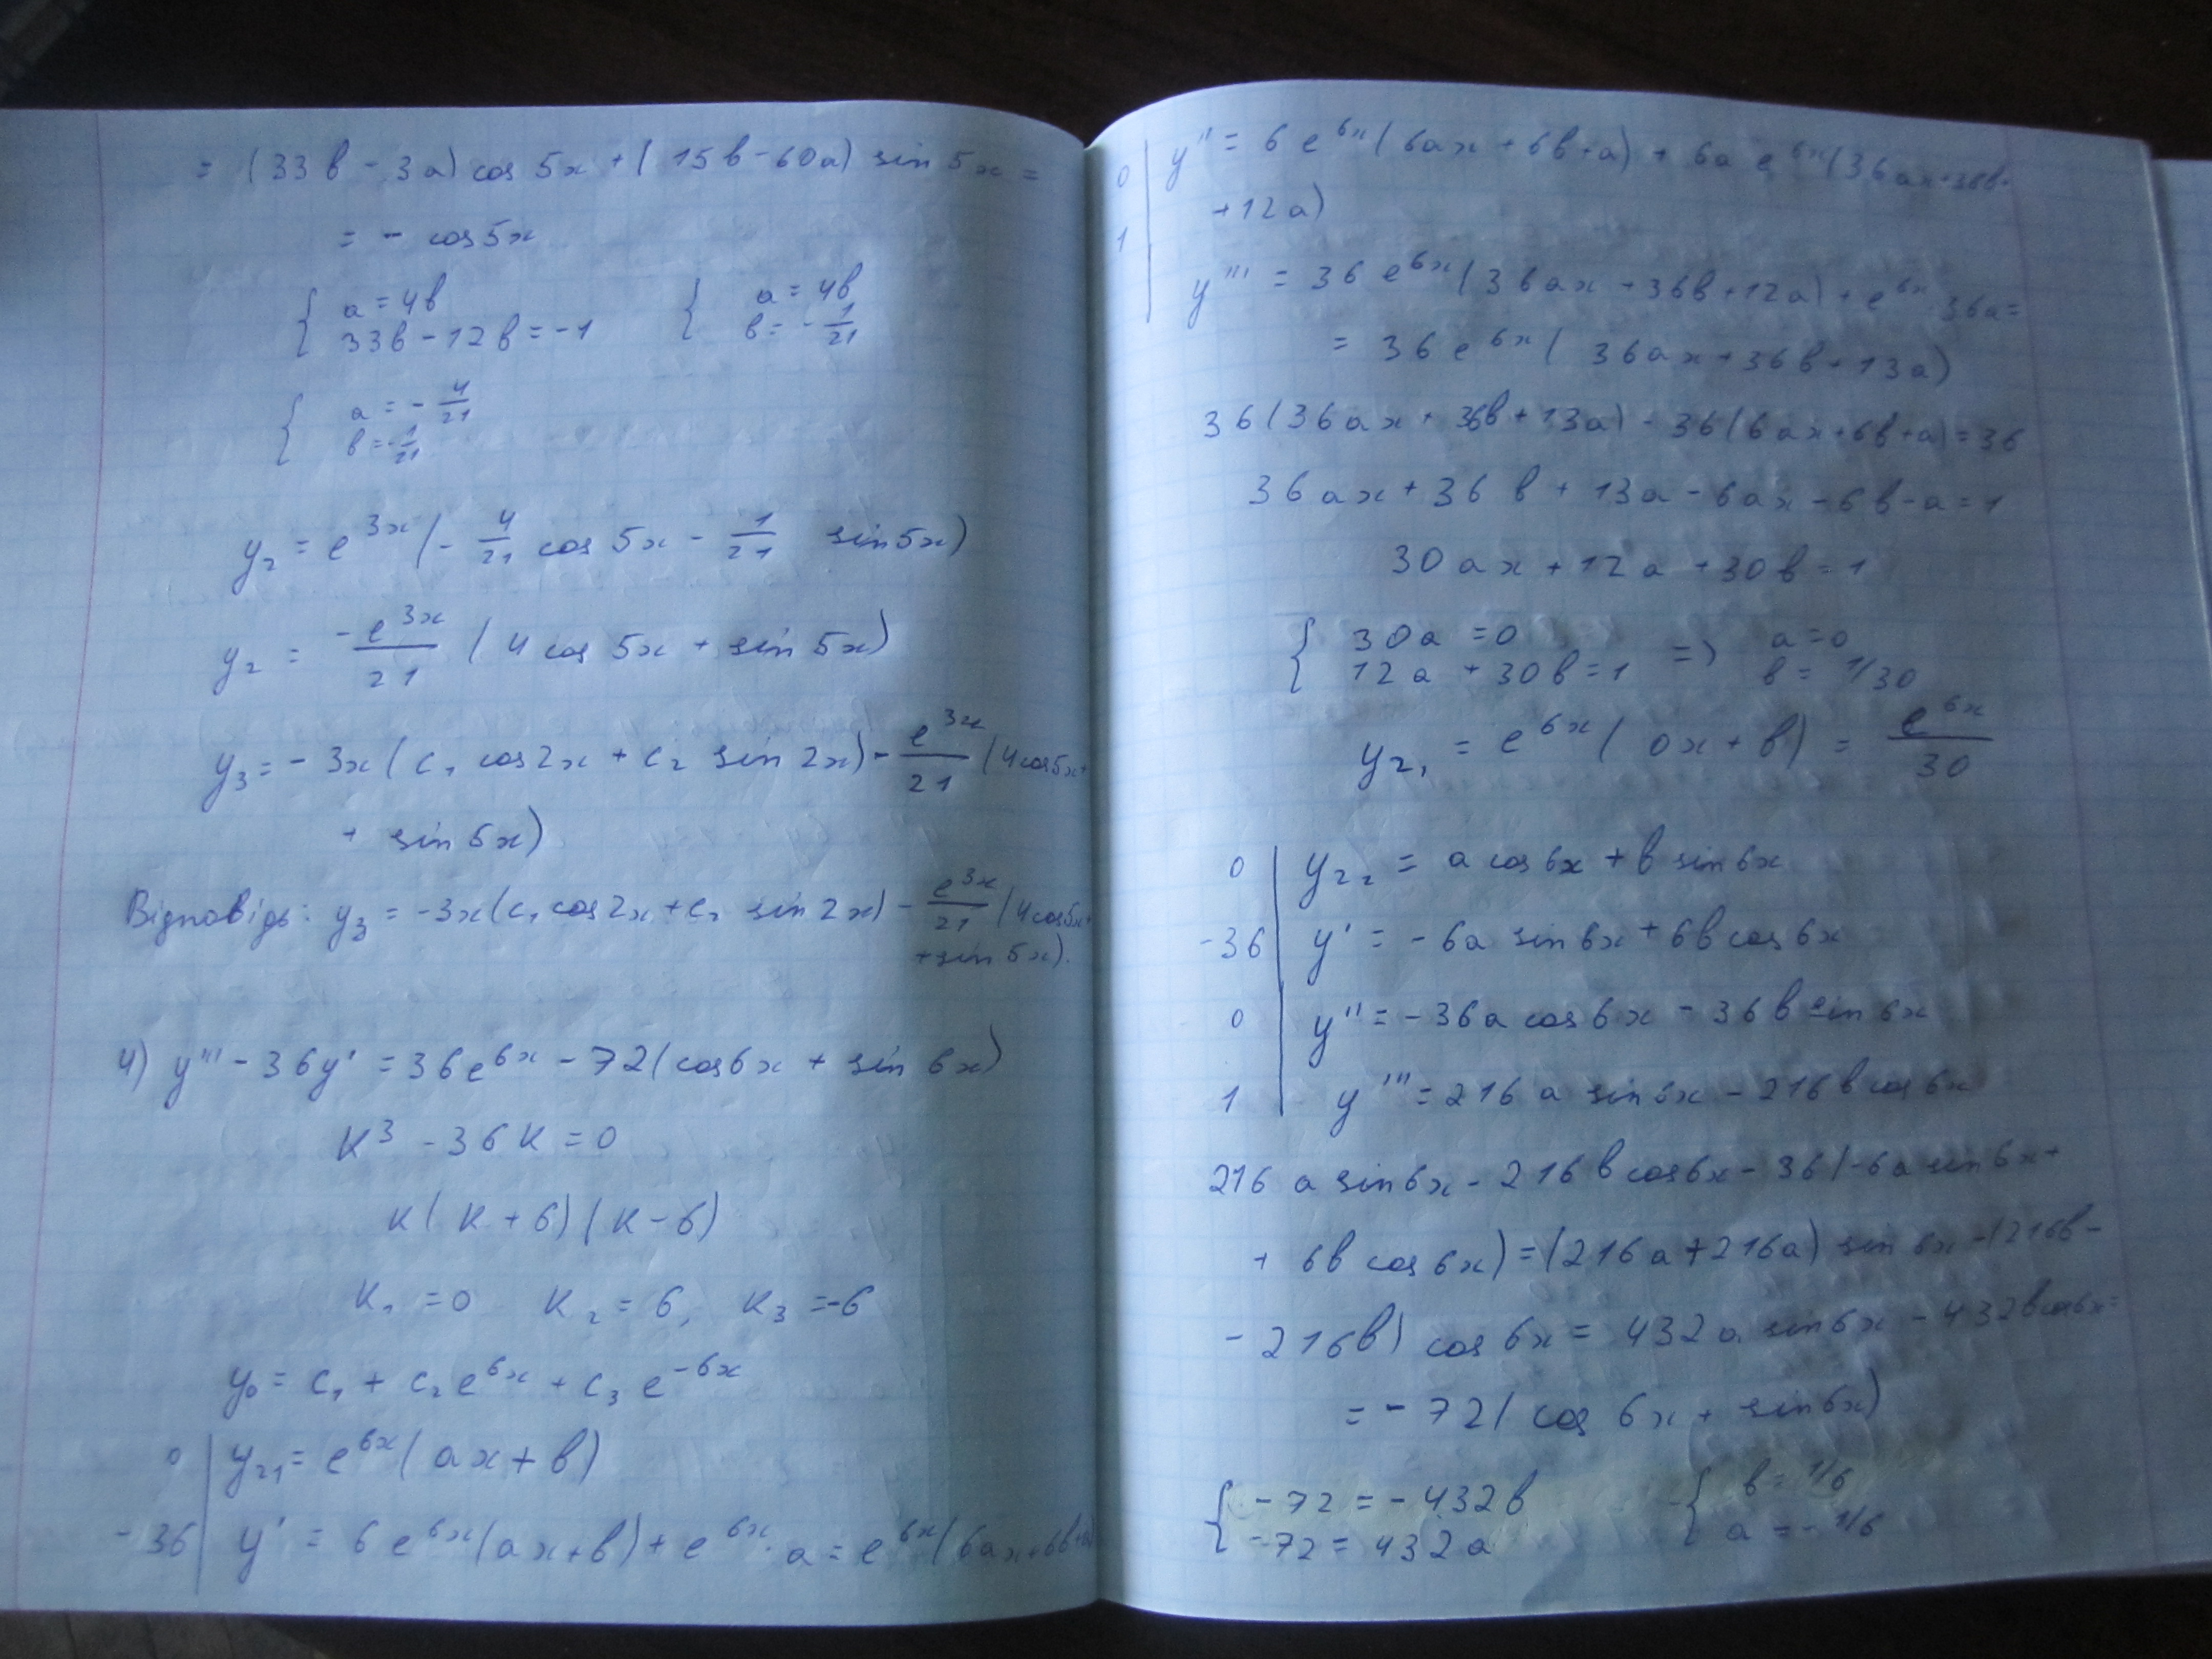 = (33b - 3a) cos 5x + (15b - 60a) sin 5x =
= - cos 5x
{ a = 4b { a = 4b
33b - 12b = -1 b = -1/21
{ a = -4/21
b = -1/21
y₂ = e^{3x} (-4/21 cos 5x - 1/21 sin 5x)
y₂ = -e^{3x}/21 (4 cos 5x + sin 5x)
y₃ = -3x (c₁ cos 2x + c₂ sin 2x) - e^{3x}/21 (4 cos 5x +
+ sin 5x)
Відповідь: y₃ = -3x (c₁ cos 2x + c₂ sin 2x) - e^{3x}/21 (4 cos 5x +
+ sin 5x).
4) y''' - 36y' = 36e^{6x} - 72(cos 6x + sin 6x)
k³ - 36k = 0
k(k + 6)(k - 6)
k₁ = 0 k₂ = 6, k₃ = -6
y₀ = c₁ + c₂e^{6x} + c₃e^{-6x}
0 | y₂₁ = e^{6x}(ax + b)
-36 | y' = 6e^{6x}(ax + b) + e^{6x} · a = e^{6x}(6ax + 6b + a)
0 | y'' = 6e^{6x}(6ax + 6b + a) + 6a e^{6x}(36ax + 36b +
+ 12a)
1
y''' = 36e^{6x}(36ax + 36b + 12a) + e^{6x} 36a =
= 36e^{6x}(36ax + 36b + 13a)
36(36ax + 36b + 13a) - 36(6ax + 6b + a) = 36
36ax + 36b + 13a - 6ax - 6b - a = 1
30ax + 12a + 30b = 1
{ 30a = 0 => a = 0
12a + 30b = 1 b = 1/30
y₂₁ = e^{6x}(0x + b) = e^{6x}/30
0 | y₂₂ = a cos 6x + b sin 6x
-36 | y' = -6a sin 6x + 6b cos 6x
0 | y'' = -36a cos 6x - 36b sin 6x
1 | y''' = 216a sin 6x - 216b cos 6x
216 a sin 6x - 216b cos 6x - 36(-6a sin 6x +
+ 6b cos 6x) = (216a + 216a) sin 6x - (216b -
- 216b) cos 6x = 432a sin 6x - 432b cos 6x =
= -72(cos 6x + sin 6x)
{ -72 = -432b { b = 1/6
-72 = 432a a = -1/6